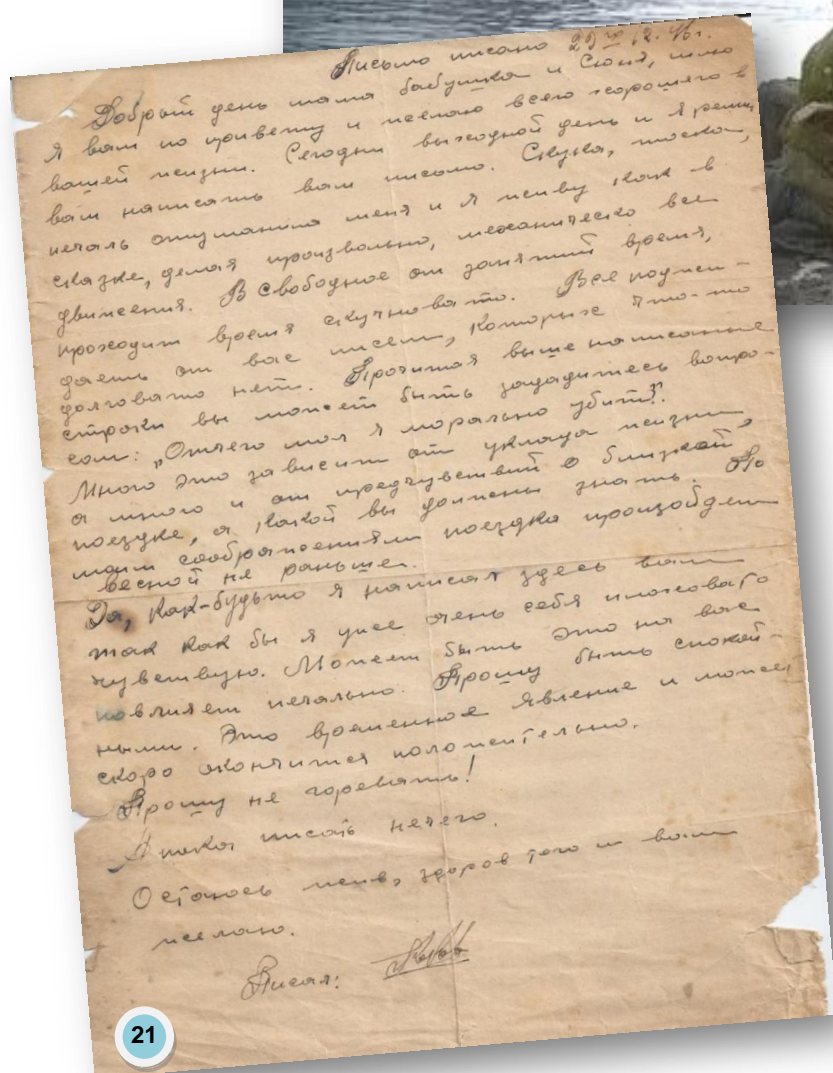 Письмо писано 25 12. 46 г.
Добрый день мама бабушка и Сюня, шлю
я вам по привету и желаю всего хорошего в
вашей жизни. Сегодня выходной день и я решил
вам написать вам письмо. Скука, тоска,
печаль отуманила меня и я живу как в
сказке, делая произвольно, механическо все
движения. В свободное от занятий время,
проходит время скучновато. Все поджи-
даешь от вас писем, которых что-то
долговато нет. Прочитая выше написанные
строки вы может быть зададитесь вопро-
сом: "Отчего мол я морально убит?".
Много это зависит от уклада жизни
а много и от предчувствий о близкой
поездке, а какой вы должны знать. По
моим соображениям поездка произойдет
весной не раньше.
Да, как-будьто я написал здесь вам
так как бы я уже очень себя плоховато
чувствую. Может быть это на вас
повлияет печально. Прошу быть спокой-
ными. Это временное явление и может
скоро окончится положительно.
Прошу не горевать!
А пока писать нечего.
Остаюсь жив, здоров того и вам
желаю.
Писал:
21